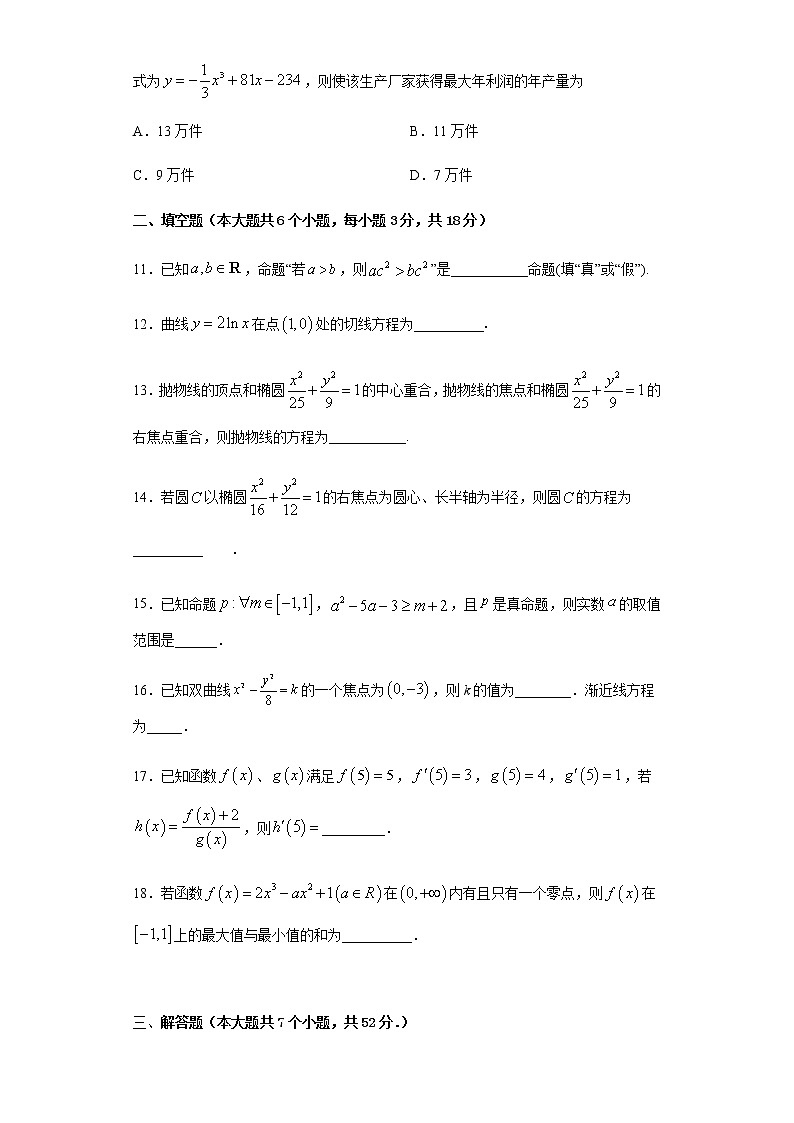 式为 y = -\frac{1}{3}x^3 + 81x - 234，则使该生产厂家获得最大年利润的年产量为
A．13 万件 B．11 万件
C．9 万件 D．7 万件
二、填空题（本大题共 6 个小题，每小题 3 分，共 18 分）
11．已知 a,b ∈ R，命题“若 a > b，则 ac² > bc²”是___________命题(填“真”或“假”).
12．曲线 y = 2ln x 在点 (1,0) 处的切线方程为__________．
13．抛物线的顶点和椭圆 \frac{x^2}{25} + \frac{y^2}{9} = 1 的中心重合，抛物线的焦点和椭圆 \frac{x^2}{25} + \frac{y^2}{9} = 1 的
右焦点重合，则抛物线的方程为___________.
14．若圆 C 以椭圆 \frac{x^2}{16} + \frac{y^2}{12} = 1 的右焦点为圆心、长半轴为半径，则圆 C 的方程为
__________ ．
15．已知命题 p : ∀m ∈ [-1,1]，a² - 5a - 3 ≥ m + 2，且 p 是真命题，则实数 a 的取值
范围是______．
16．已知双曲线 x² - \frac{y^2}{8} = k 的一个焦点为 (0,-3)，则 k 的值为________．渐近线方程
为_____．
17．已知函数 f(x)、g(x) 满足 f(5) = 5，f′(5) = 3，g(5) = 4，g′(5) = 1，若
h(x) = \frac{f(x)+2}{g(x)}，则 h′(5) = _________．
18．若函数 f(x) = 2x³ - ax² + 1(a ∈ R) 在 (0,+∞) 内有且只有一个零点，则 f(x) 在
[-1,1] 上的最大值与最小值的和为__________．
三、解答题（本大题共 7 个小题，共 52 分.）